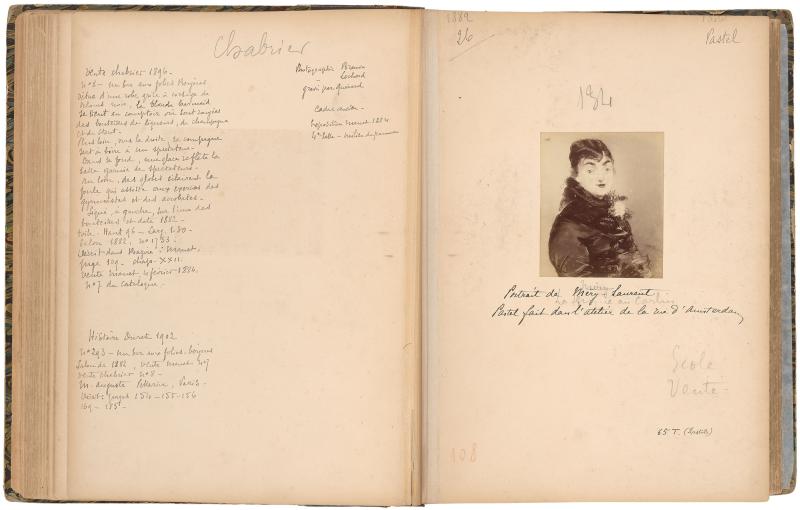 Chabrier
Vente Chabrier 1896 -
N° 8 - un bar aux folies Bergères
vêtue d'une robe grise à corsage de
velours noir, la blonde barmaid
se tient au comptoir où sont rangées
des bouteilles de liqueurs, de champagne
et de stout.
Plus loin, sur la droite, sa compagne
sert à boire à un spectateur.
Dans le fond, une glace reflète la
salle garnie de spectateurs.
Au loin, des globes éclairent la
foule qui assiste aux exercices des
gymnastes et des acrobates.
Signé, à gauche, sur l'une des
bouteilles et daté 1882 -
toile. Haut 96 - Larg. 1.30 -
Salon 1882, n° 1753 :
Décrit dans Bazire : Manet,
page 109. chap. XXII.
Vente Manet 4 février 1884,
N° 7 du Catalogue.
Histoire Duret 1902
N° 293 - un bar aux folies-bergère
Salon de 1882, vente Manet N° 7
Vente Chabrier N° 8 -
M. Auguste Pellerin, Paris -
Voir : pages 154 - 155 - 156
169 - 185 -
Photographie
Lochard
gravé par Guérard
Cadre ancien -
Exposition Manet 1884
1882
26
Pastel
184
Portrait de Méry Laurent
Pastel fait dans l'atelier de la rue d'Amsterdam
Vente
65 T. (Pastels)
108